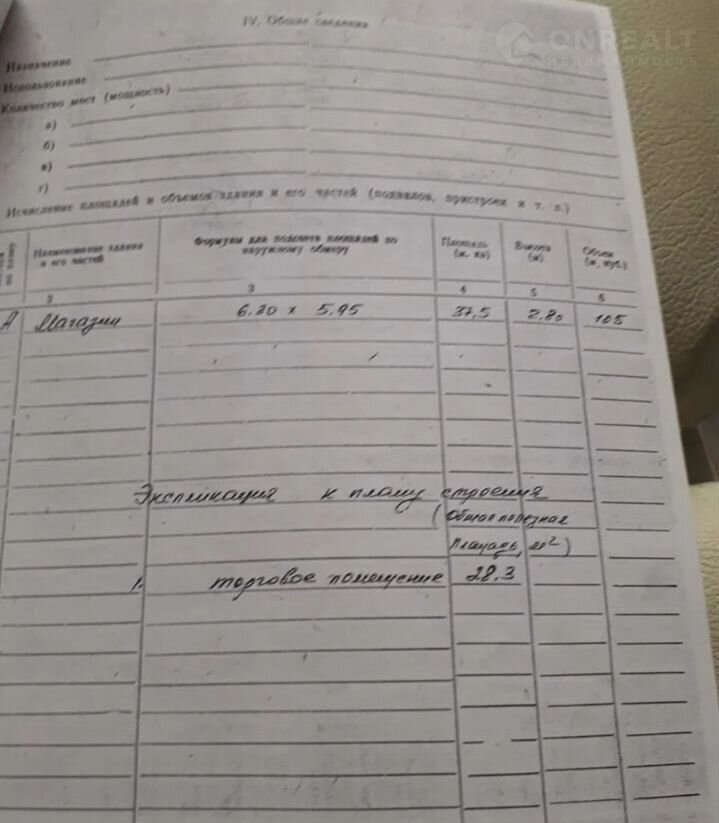 IV. Общие сведения
ONREALT
НЕДВИЖИМОСТЬ
Назначение
Использование
Количество мест (мощность)
а)
б)
в)
г)
Исчисление площадей и объемов здания и его частей (подвалов, пристроек и т. п.)
по плану
Наименование здания и его частей
Формулы для подсчета площадей по наружному обмеру
Площадь (м. кв)
Высота (м)
Объем (м. куб.)
2 3 4 5 6
А Магазин 6.30 х 5.95 37,5 2.80 105
Экспликация к плану строения
(Общая полезная
площадь, м²)
1. торговое помещение 28.3